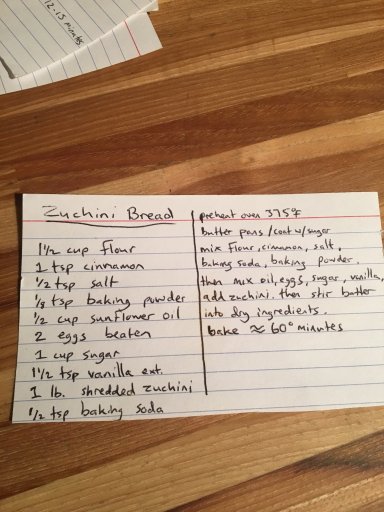 12-15 minutes
Zuchini Bread
1½ cup flour
1 tsp cinnamon
½ tsp salt
½ tsp baking powder
½ cup sunflower oil
2 eggs beaten
1 cup sugar
1½ tsp vanilla ext.
1 lb. shredded zuchini
½ tsp baking soda
preheat oven 375°F
butter pans/coat w/sugar
mix flour, cinnamon, salt,
baking soda, baking powder.
then mix oil, eggs, sugar, vanilla,
add zuchini. then stir butter
into dry ingredients.
bake ≈ 60° minutes